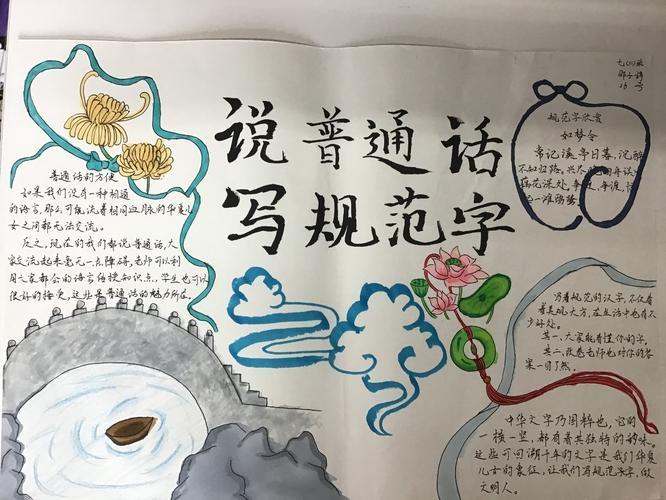 说普通话
写规范字
普通话的方便
如果我们没有一种相通
的语言,那么可能流着相同血脉的华夏儿
女之间都无法交流。
反之,现在的我们都说普通话,大
家交流起来毫无一点障碍,老师可以利
用大家都会的语言传授知识点,学生也可以
很好的接受,这处是普通话的魅力所在。
规范字欣赏
如梦令
常记溪亭日暮,沉醉
不知归路。兴尽
藕花深处。争渡,争渡,
一滩鸥鹭
写着规范的汉字,不仅看
着美观大方,在生活中也有不
少好处。
其一、大家能看懂你的字。
其二、改卷老师也对你的答
案一目了然。
中华文字乃国粹也,它的
一横一竖,都有着其独特的韵味。
这些可回溯千年的文字是我们华夏
儿女的象征,让我们写规范汉字,做
文明人。